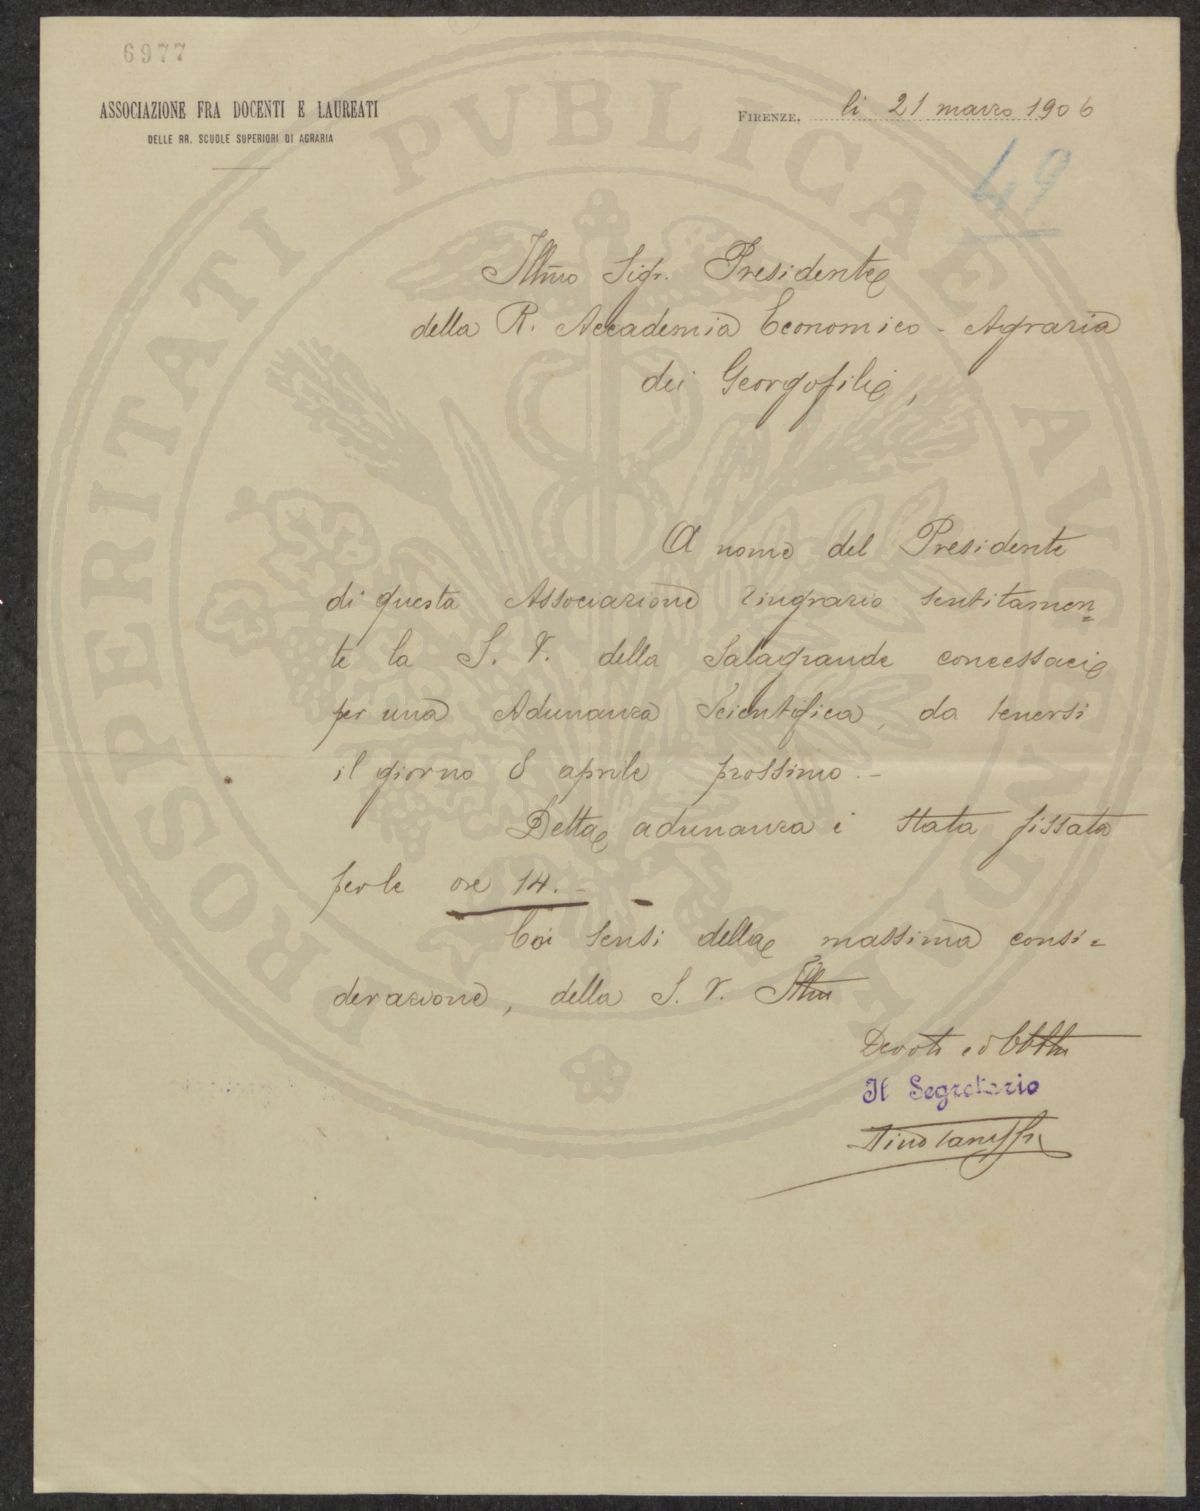 6977
ASSOCIAZIONE FRA DOCENTI E LAUREATI
DELLE RR. SCUOLE SUPERIORI DI AGRARIA
FIRENZE, li 21 marzo 1906
49
Illmo Sigr. Presidente
della R. Accademia Economico - Agraria
dei Georgofili,
A nome del Presidente
di questa Associazione ringrazio sentitamen=
te la S. V. della Salagrande concessaci
per una Adunanza Scientifica, da tenersi
il giorno 8 aprile prossimo. -
Detta adunanza è stata fissata
per le ore 14. - -
Coi sensi della massima consi=
derazione, della S. V. Illma
Il Segretario
PROSPERITATI PVBLICAE AVGENDAE